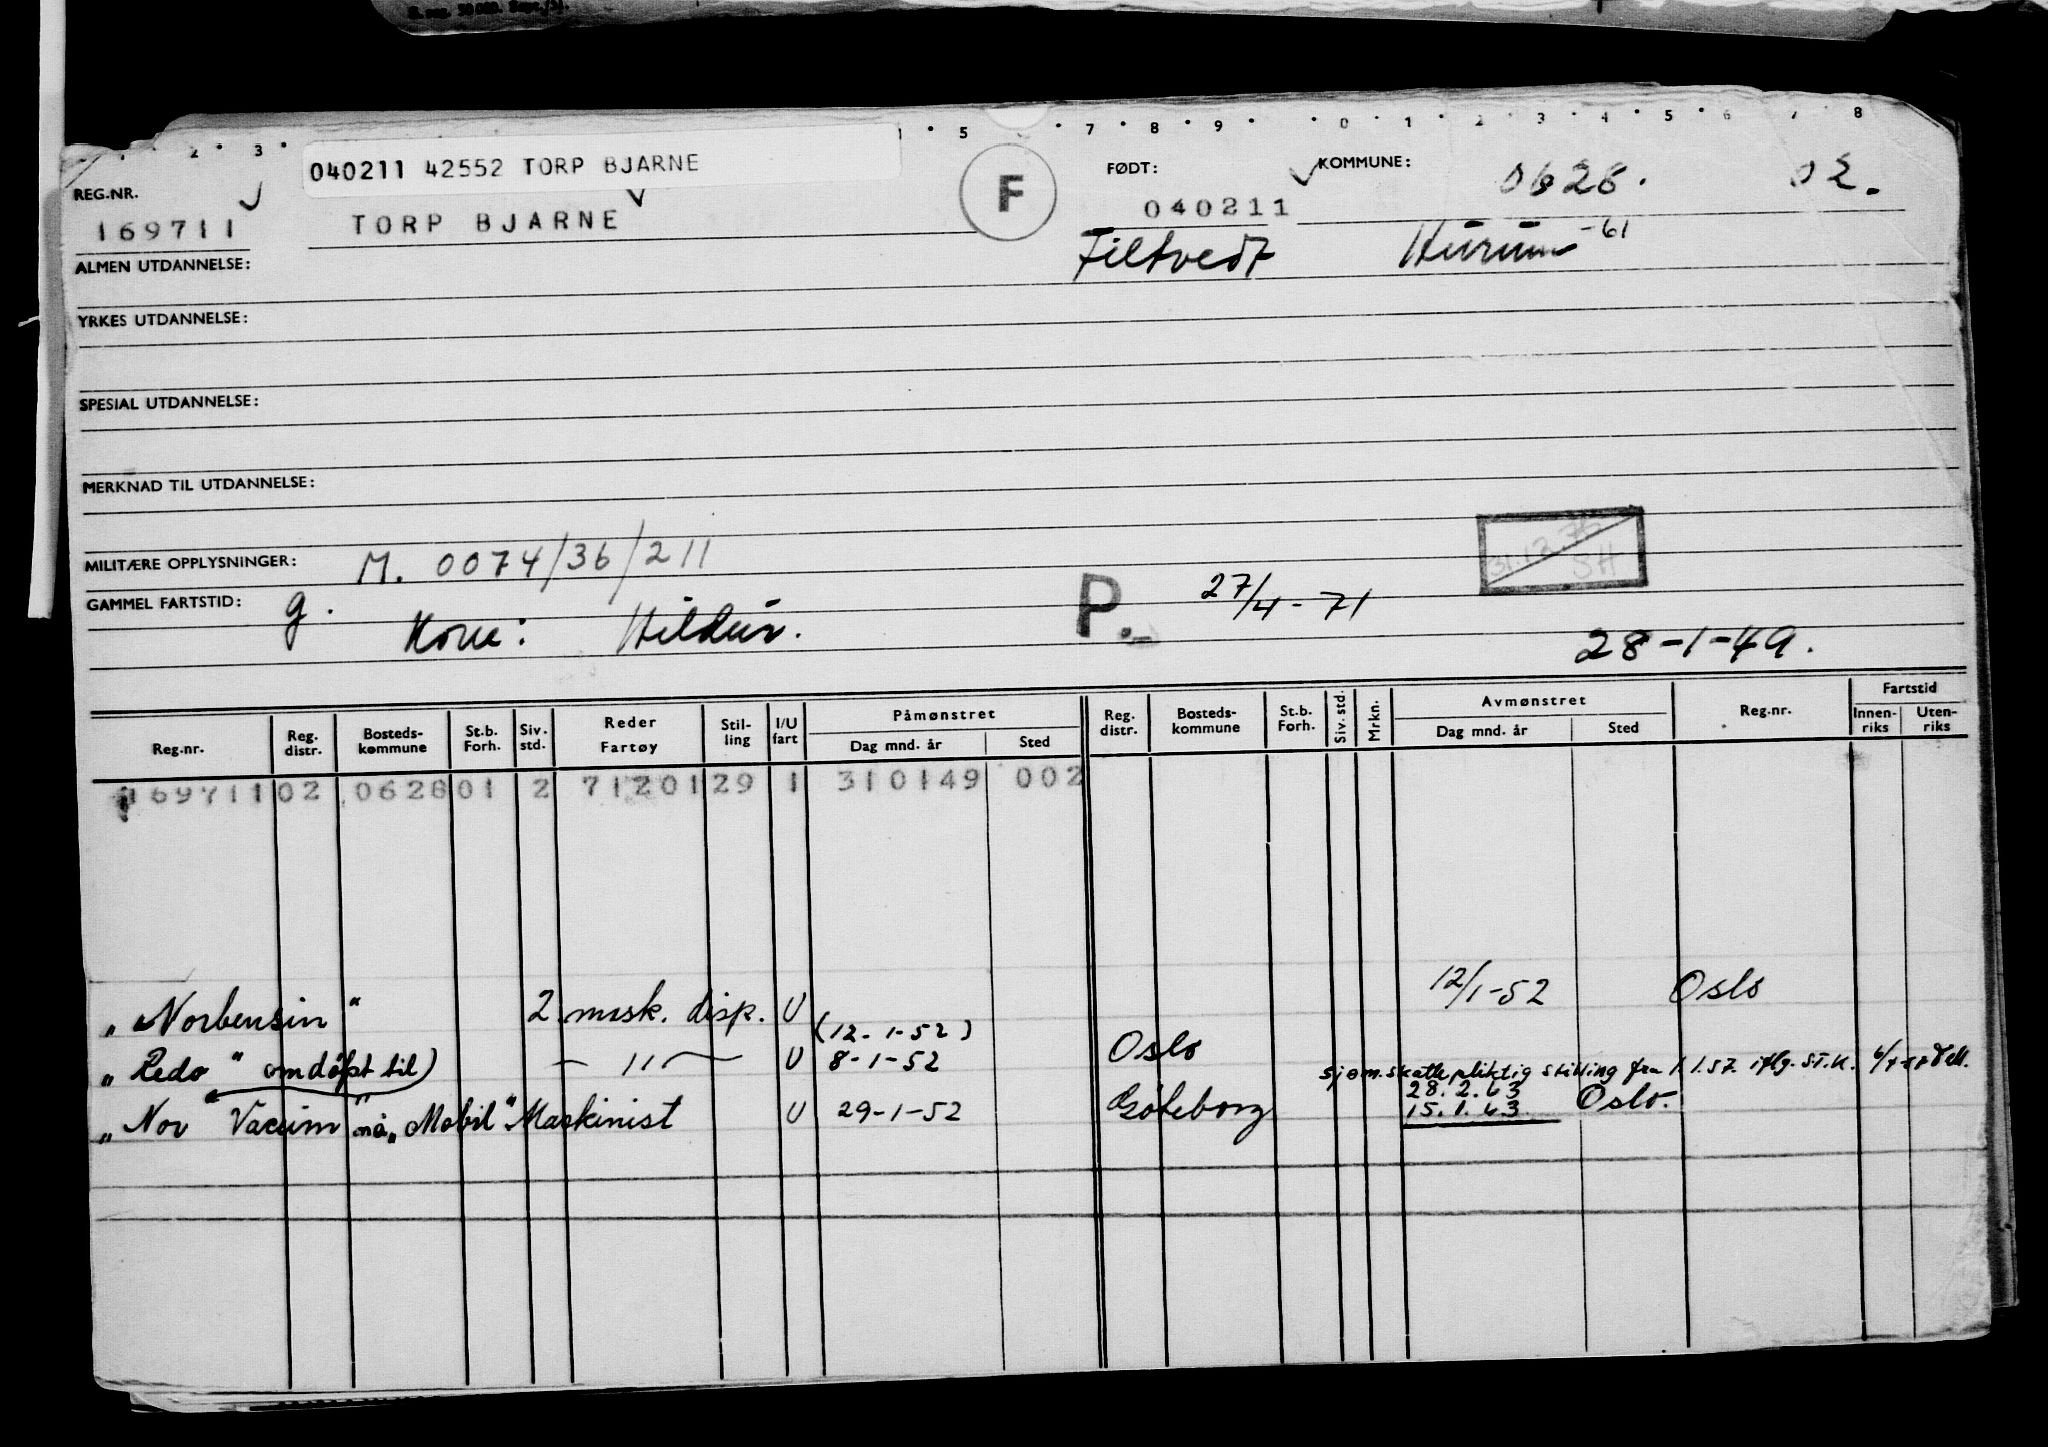 2 3 5 7 8 9 0 1 2 3 4 5 6 7 8
040211 42552 TORP BJARNE
REG.NR. F FØDT: KOMMUNE: 0628. 02.
169711 TORP BJARNE 040211
ALMEN UTDANNELSE: Filtvedt Hurum -61
YRKES UTDANNELSE:
SPESIAL UTDANNELSE:
MERKNAD TIL UTDANNELSE:
31.12.76
SH
MILITÆRE OPPLYSNINGER: M. 0074/36/211
GAMMEL FARTSTID: g. P. 27/4-71
Kone: Hildur. 28-1-49.
Reg.nr. Reg. distr. Bosteds-kommune St.b. Forh. Siv. std. Reder Fartøy Stil-ling I/U fart Påmønstret Dag mnd. år Sted Reg. distr. Bosteds-kommune St.b. Forh. Siv. std. Mrkn. Avmønstret Dag mnd. år Sted Reg.nr. Fartstid Innen-riks Uten-riks
169711 02 0628 01 2 7120129 1 310149 002
„Norbensin" 2. mask. disp. U (12-1-52) 12/1-52 Oslo
„Redo" omdöpt til) — 11 — U 8-1-52 Oslo sjøm.skattepliktig stilling fra 1.1.57. iflg. ST.K.
„Nor Vacuum" nå „Mobil" Maskinist U 29-1-52 Göteborg 28.2.63
15.1.63 Oslo.